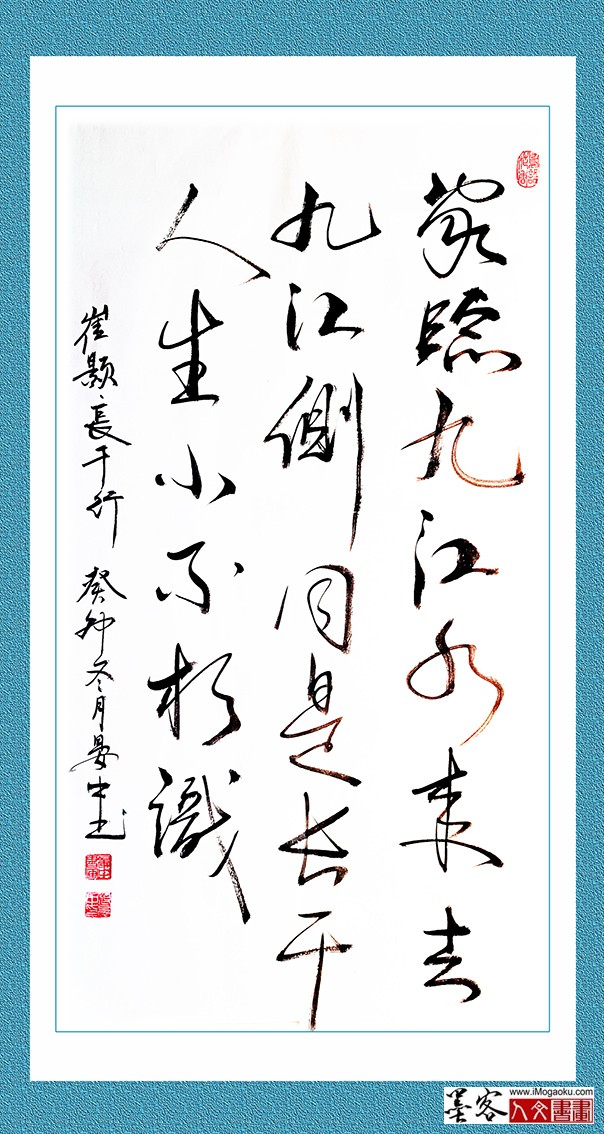 家临九江水来去
九江侧同是长干
人生小不相識
崔颢·長干行 癸卯冬月晏中书
墨客
www.iMogaoku.com
人文書畫